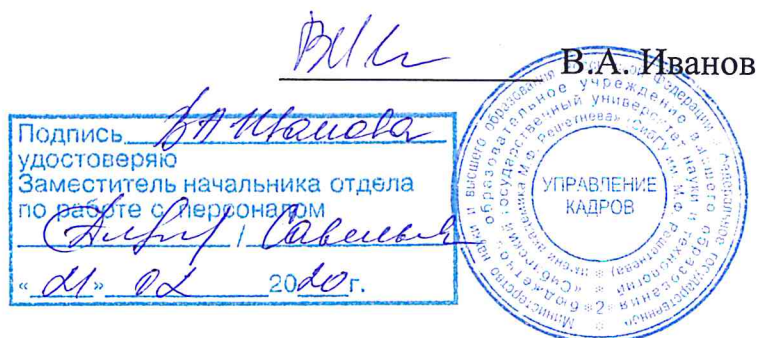 В.А. Иванов
Подпись В А Иванова
удостоверяю
Заместитель начальника отдела
по работе с персоналом
/ Савельев
« 21 » 02 2020г.
Министерство науки и высшего образования Российской Федерации * Федеральное государственное
бюджетное образовательное учреждение высшего образования
«Сибирский государственный университет науки и технологий
имени академика М.Ф. Решетнева» (СибГУ им. М.Ф. Решетнева)
* 2 *
УПРАВЛЕНИЕ
КАДРОВ